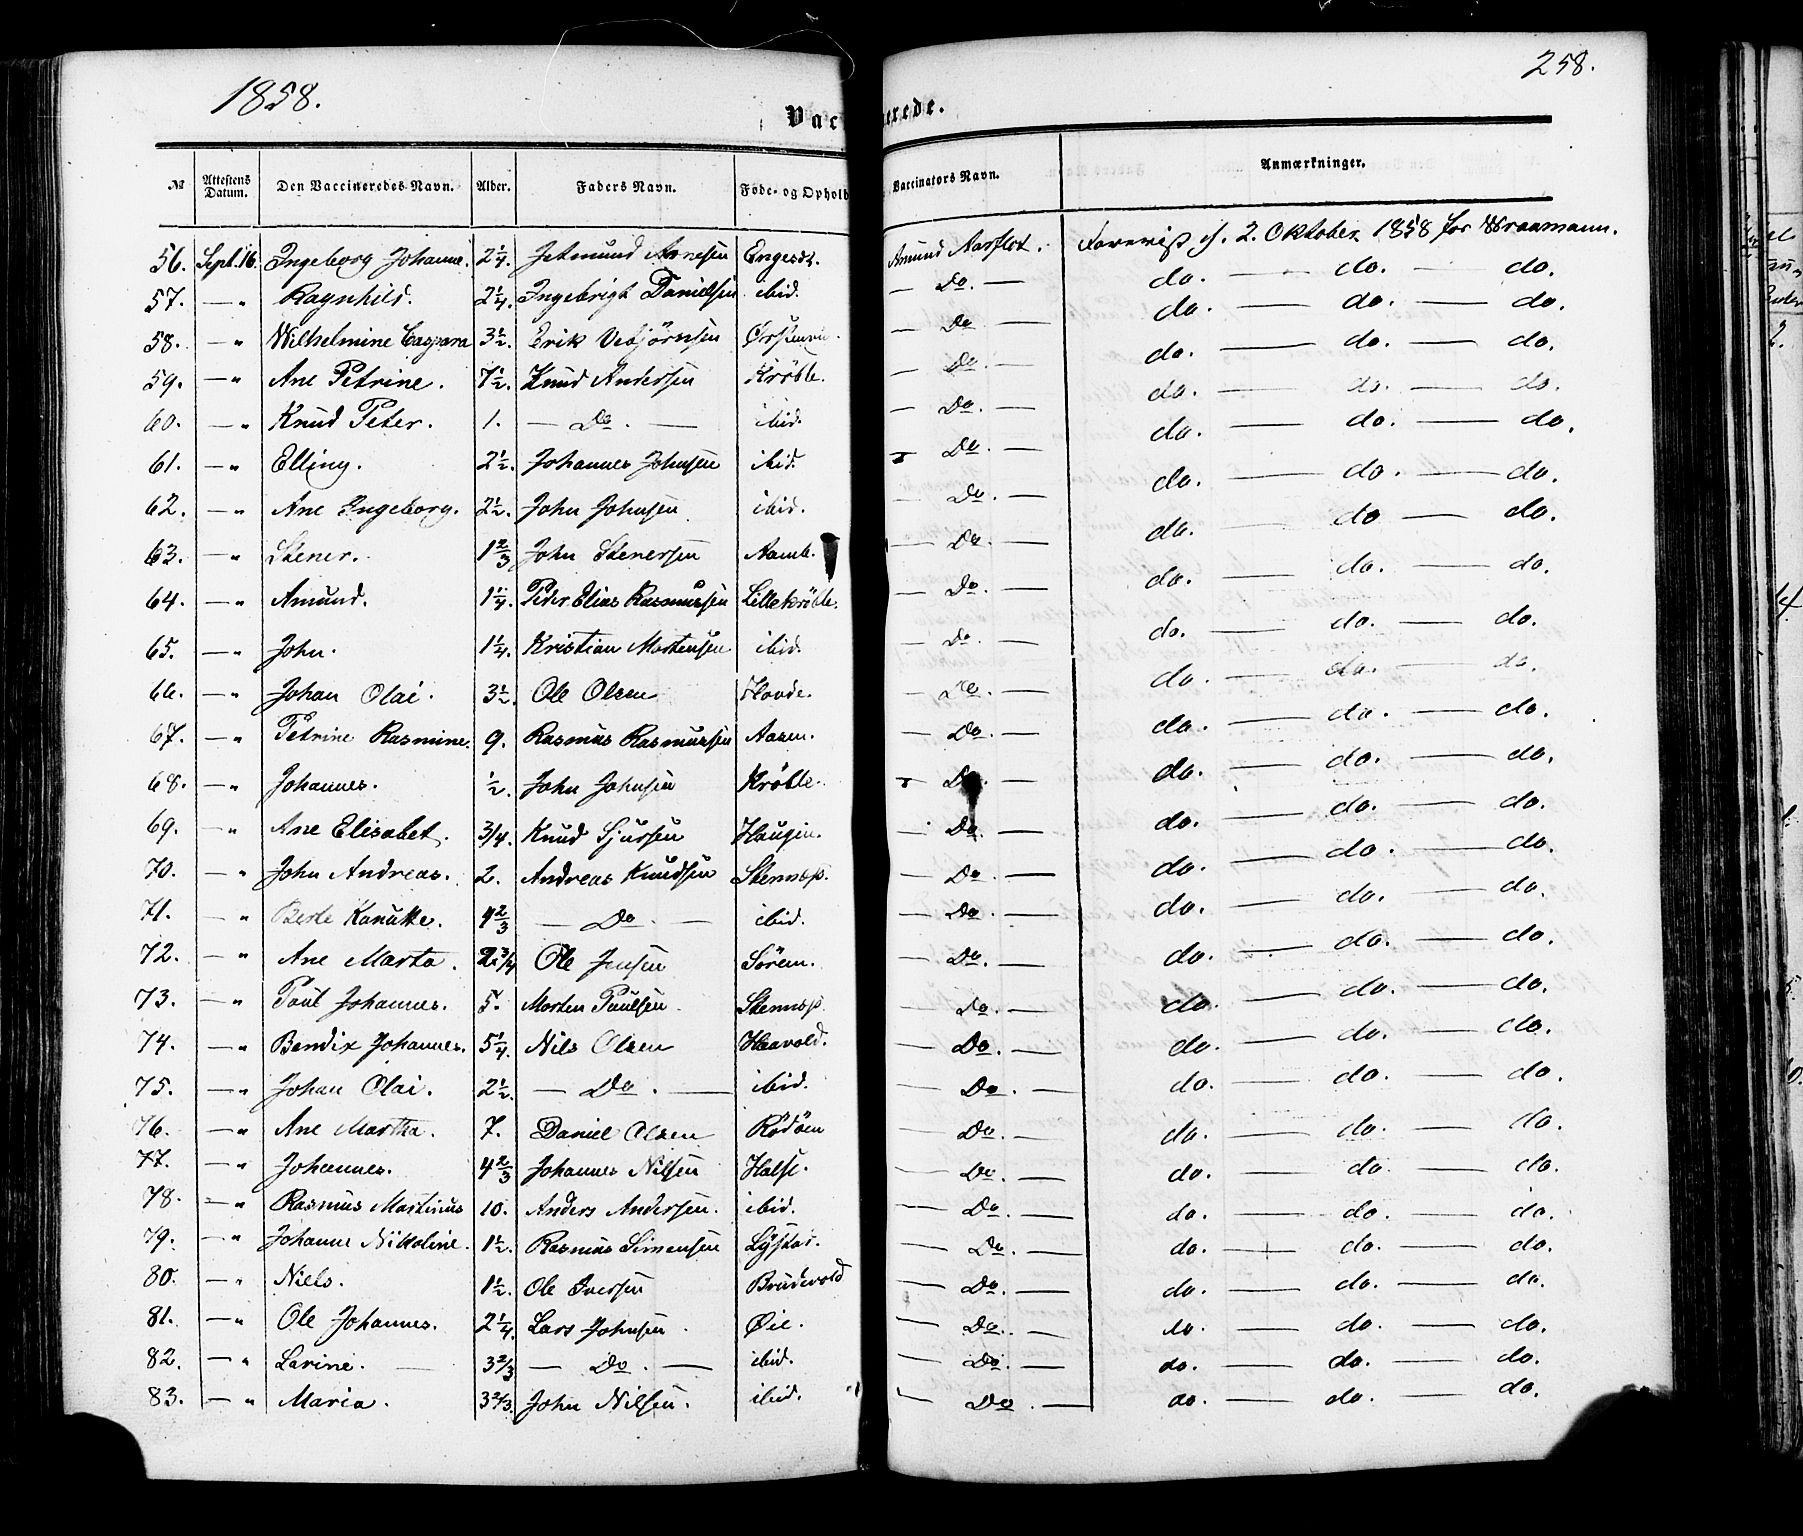 1858.
258.
Vac erede.
№ Attestens Datum. Den Vaccineredes Navn. Alder. Faders Navn. Føde- og Ophold Vaccinators Navn. Anmærkninger.
56. Sept. 16. Ingeborg Johanne. 2 1/4. Jetmund Arnesen Engeset. Amund Aarflot. Foreviist d. 2. Oktober 1858 for
57. — " Ragnhild. 2 1/4. Ingebrigt Danielsen ibid. — Do. — do. — do. — do.
58. — " Wilhelmine Caspara 3 1/2. Erik Vebjørnsen — Do. — do. — do. — do.
59. — " Ane Petrine. 7 1/2. Knud Andersen Krøble. — Do. — do. — do. — do.
60. — " Knud Peter. 1. — Do. — ibid. — Do. — do. — do. — do.
61. — " Elling. 2 1/2. Johannes Johnsen ibid. Do. — do. — do. — do.
62. — " Ane Ingeborg. 2 1/2. John Johnsen ibid. — Do. — do. — do. — do.
63. — " Stener. 1 2/3 John Stenersen Aamb. — Do. — do. — do — do.
64. — " Amund. 1 1/4. Peder Elias Rasmussen Lillekrøble. — Do. — do. — do. — do.
65. — " John. 1 1/4. Kristian Mortensen ibid. — Do. — do. — do. — do.
66. — " Johan Olai. 3 1/2. Ole Olsen Hovde. — Do. — do. — do. — do.
67. — " Petrine Rasmine. 9. Rasmus Rasmussen Aasen. — Do. — do. — do. — do.
68. — " Johannes. 1/2. John Johnsen Krøble. Do. — do. — do. — do.
69. — " Ane Elisabet. 3/4. Knud Sjursen Haugen. — Do. — do. — do. — do.
70. — " John Andreas. 2. Andreas Knudsen Stennes. — Do. — do. — do. — do.
71. — " Berte Kanutte. 4 2/3 — Do. — ibid. — Do. — do. — do. — do.
72. — " Ane Marta. 2 3/4 Ole Jensen Søren. — Do. — do. — do. — do.
73. — " Paul Johannes. 5. Morten Paulsen. Stennes. — Do. — do. — do. — do.
74. — " Bendix Johannes. 5 1/4. Nils Olsen Haavold. — Do. — do. — do. — do.
75. — " Johan Olai. 2 1/2. — Do. — ibid. — Do. — do. — do. — do.
76. — " Ane Martha. 7. Daniel Olsen Rødøen — Do. — do. — do. — do.
77. — " Johannes. 4 2/3 Johannes Nilsen Halse. — Do. — do. — do. — do.
78. — " Rasmus Martinus 10. Anders Andersen. ibid. — Do. — do. — do. — do.
79. — " Johanne Nikoline. 1 1/2. Rasmus Simensen — Do. — do. — do. — do.
80. — " Niels. 1 1/2. Ole Iversen Brudevold — Do. — do. — do. — do.
81. — " Ole Johannes. 2 1/4. Lars Johnsen. Øie. — Do. — do. — do. — do.
82. — " Larine. — 3 2/3 — Do. — ibid. — Do. — do. — do. — do.
83. — " Maria. 3 2/3. John Nilsen. ibid. — Do. — do. — do. — do.